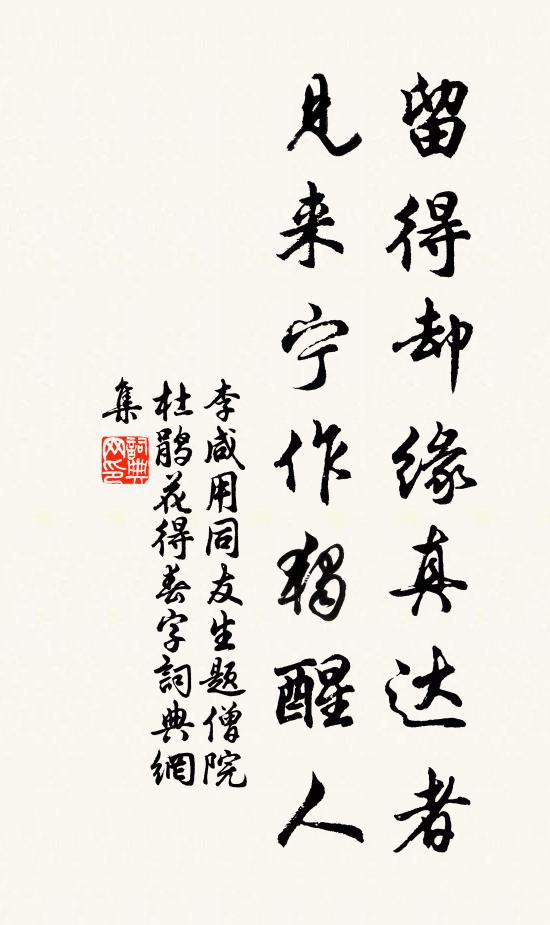 留得却缘真达者
见来宁作独醒人
李咸用同友生题僧院
杜鹃花得春字詞典網
集
詞典網印